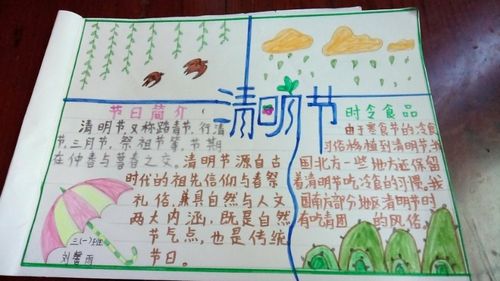 清明节
节日简介
清明节,又称踏青节、行清
节、三月节、祭祖节等,节期
在仲春与暮春之交。清明节源自古
时代的祖先信仰与春祭
礼俗,兼具自然与人文
两大内涵,既是自然
节气点,也是传统
节日。
三(一)班
刘馨雨
时令食品
由于寒食节的冷食
习俗移植到清明节,我
国北方一些地方还保留
着清明节吃冷食的习惯。我
国南部分地区清明节时
有吃青团 的风俗。